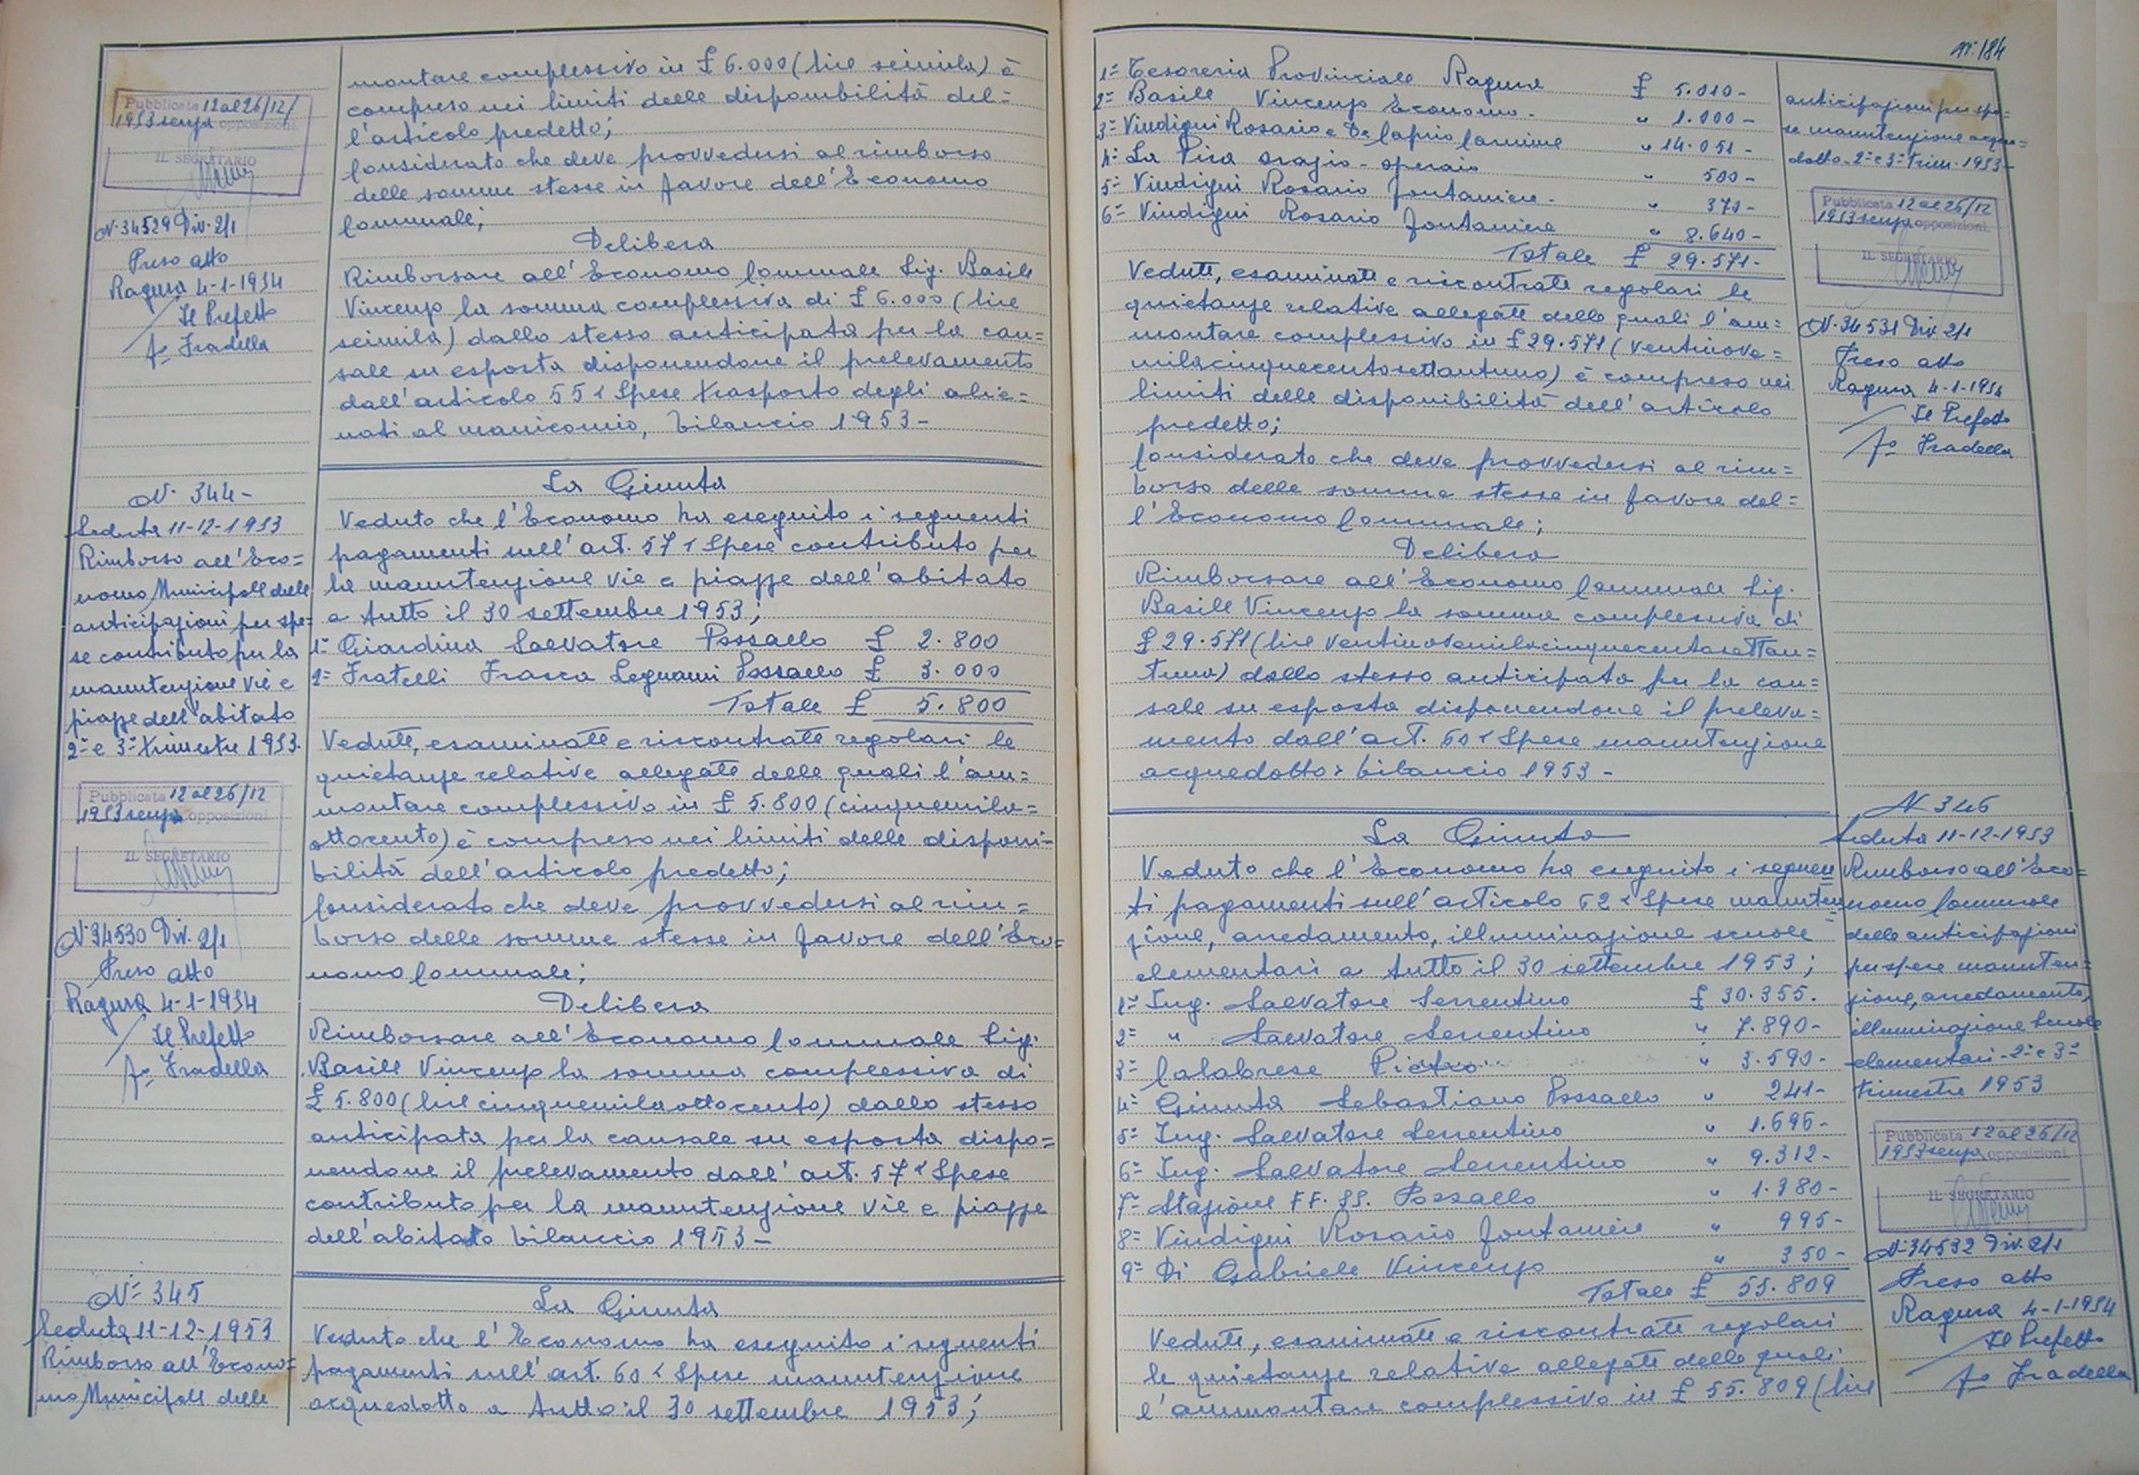 montare complessivo in £ 6.000 (lire seimila) è
compreso nei limiti delle disponibilità del=
l'articolo predetto;
Considerato che deve provvedersi al rimborso
delle somme stesse in favore dell'Economo
Comunale;
Delibera
Rimborsare all'Economo Comunale Sig. Basile
Vincenzo la somma complessiva di £ 6.000 (lire
seimila) dallo stesso anticipata per la cau=
sale su esposta disponendone il prelevamento
dall'articolo 55 < Spese trasporto degli alie=
nati al manicomio, bilancio 1953 -
Pubblicata 12 al 26/12/
1953 senza opposizioni.
IL SEGRETARIO
N. 34529 Div. 2/1
Preso atto
Ragusa 4-1-1954
Il Prefetto
fo Fradella
N. 344 -
Seduta 11-12-1953
Rimborso all'Eco=
nomo Municipale delle
anticipazioni per spe=
se contributo per la
manutenzione vie e
piazze dell'abitato
2º e 3º trimestre 1953.
Pubblicata 12 al 26/12
1953 senza opposizioni.
IL SEGRETARIO
N. 34530 Div. 2/1
Preso atto
Ragusa 4-1-1954
Il Prefetto
fo Fradella
La Giunta
Veduto che l'Economo ha eseguito i seguenti
pagamenti sull'art. 57 < Spese contributo per
la manutenzione vie e piazze dell'abitato
a tutto il 30 settembre 1953;
1º Giardina Salvatore Pozzallo £ 2.800
2º Fratelli Frasca Legnami Pozzallo £ 3.000
Totale £ 5.800
Vedute, esaminate e riscontrate regolari le
quietanze relative allegate delle quali l'am=
montare complessivo in £ 5.800 (cinquemila=
ottocento) è compreso nei limiti delle disponi-
bilità dell'articolo predetto;
Considerato che deve provvedersi al rim=
borso delle somme stesse in favore dell'Eco=
nomo Comunale;
Delibera
Rimborsare all'Economo Comunale Sig.
Basile Vincenzo la somma complessiva di
£ 5.800 (lire cinquemilaottocento) dallo stesso
anticipata per la causale su esposta dispo=
nendone il prelevamento dall'art. 57 < Spese
contributo per la manutenzione vie e piazze
dell'abitato bilancio 1953 -
Nº 345
Seduta 11-12-1953
Rimborso all'Econo=
mo Municipale delle
La Giunta
Veduto che l'Economo ha eseguito i seguenti
pagamenti sull'art. 60 < Spese manutenzione
acquedotto a tutto il 30 settembre 1953;
nº 184
1º Tesoreria Provinciale Ragusa £ 5.010 -
2º Basile Vincenzo Economo - " 1.000 -
3º Vindigni Rosario e Lo Caprio Carmine " 14.051 -
4º La Pira Orazio - operaio " 500 -
5º Vindigni Rosario fontaniere - " 370 -
6º Vindigni Rosario fontaniere " 8.640 -
Totale £ 29.571 -
Vedute, esaminate e riscontrate regolari le
quietanze relative allegate delle quali l'am=
montare complessivo in £ 29.571 (ventinove=
milacinquecentosettantuno) è compreso nei
limiti delle disponibilità dell'articolo
predetto;
Considerato che deve provvedersi al rim=
borso delle somme stesse in favore del=
l'Economo Comunale;
Delibera
Rimborsare all'Economo Comunale Sig.
Basile Vincenzo la somma complessiva di
£ 29.571 (lire ventinovemilacinquecentosettan=
tuno) dallo stesso anticipata per la cau=
sale su esposta disponendone il preleva=
mento dall'art. 60 < Spese manutenzione
acquedotto > bilancio 1953 -
anticipazioni per spe=
se manutenzione acque=
dotto - 2º e 3º trim. 1953 -
Pubblicata 12 al 26/12
1953 senza opposizioni.
IL SEGRETARIO
N. 34531 Div. 2/1
Preso atto
Ragusa 4-1-1954
Il Prefetto
fo Fradella
La Giunta
Veduto che l'Economo ha eseguito i seguen
ti pagamenti sull'articolo 62 < Spese manuten
zione, arredamento, illuminazione scuole
elementari a tutto il 30 settembre 1953;
1º Ing. Salvatore Serrentino £ 30.355.
2º " Salvatore Serrentino " 7.890 -
3º Calabrese Pietro " 3.590 -
4º Giunta Sebastiano Pozzallo " 241 -
5º Ing. Salvatore Serrentino " 1.696 -
6º Ing. Salvatore Serrentino " 9.312 -
7º Stazione FF. SS. Pozzallo " 1.380 -
8º Vindigni Rosario fontaniere " 995 -
9º Di Gabriele Vincenzo " 350 -
Totale £ 55.809
Vedute, esaminate e riscontrate regolari
le quietanze relative allegate delle quali
l'ammontare complessivo in £ 55.809 (lire
N 346
Seduta 11-12-1953
Rimborso all'Eco=
nomo Comunale
delle anticipazioni
per spese manuten=
zione, arredamento,
illuminazione scuole
elementari - 2º e 3º
trimestre 1953
Pubblicata 12 al 26/12
1953 senza opposizioni.
IL SEGRETARIO
N. 34532 Div. 2/1
Preso atto
Ragusa 4-1-1954
Il Prefetto
fo Fradella